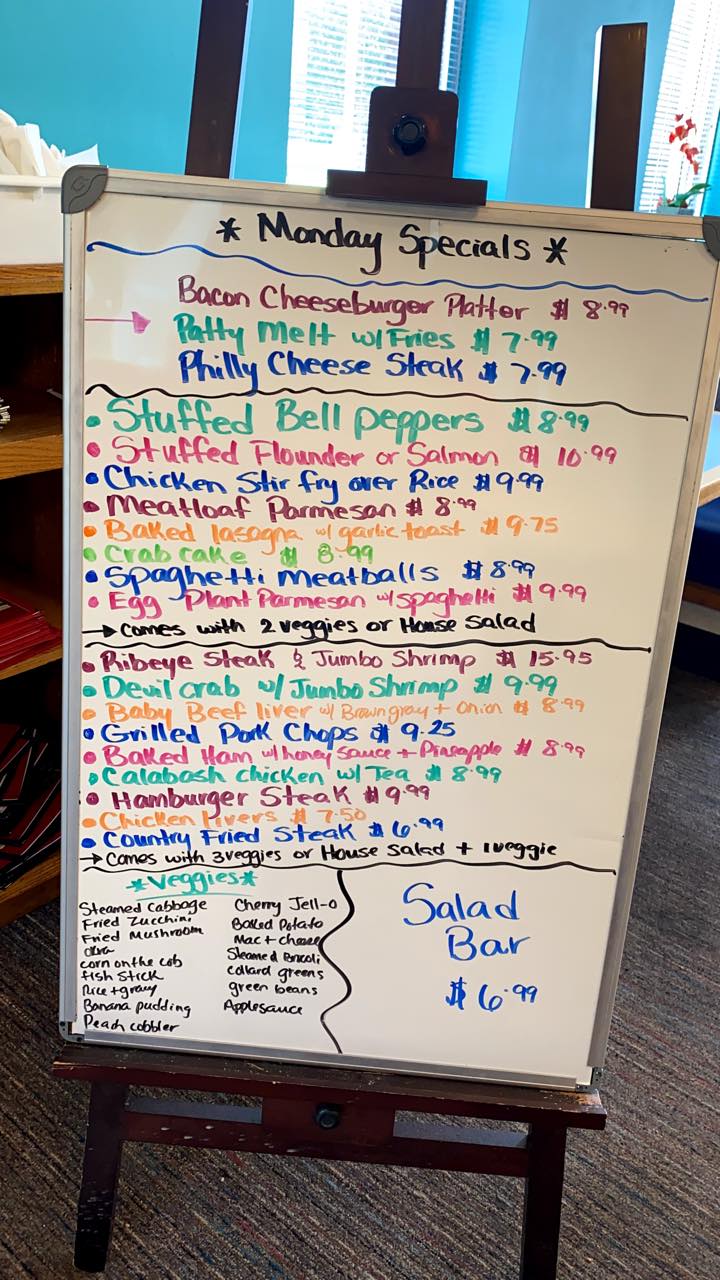 * Monday Specials *
Bacon Cheeseburger Platter $ 8.99
Patty Melt w/ Fries $ 7.99
Philly Cheese Steak $ 7.99
• Stuffed Bell peppers $8.99
• Stuffed Flounder or Salmon $ 10.99
• Chicken Stir fry over Rice $9.99
• Meatloaf Parmesan $ 8.99
• Baked lasagna w/ garlic toast $ 9.75
• Crab cake $ 8.99
• Spaghetti meatballs $8.99
• Egg Plant Parmesan w/ spaghetti $9.99
→ Comes with 2 veggies or House Salad
• Ribeye Steak & Jumbo Shrimp $ 15.95
• Devil crab w/ Jumbo Shrimp $ 9.99
• Baby Beef liver w/ Brown gravy + onion $ 8.99
• Grilled Pork Chops $ 9.25
• Baked Ham w/ honey sauce + Pineapple $ 8.99
• Calabash chicken w/ Tea $ 8.99
• Hamburger Steak $9.99
• Chicken Livers $ 7.50
• Country Fried Steak $ 6.99
→ Comes with 3 veggies or House Salad + 1 veggie
*Veggies*
Steamed Cabbage
Fried Zucchini
Fried Mushroom
okra
corn on the cob
fish stick
Rice + gravy
Banana pudding
Peach cobbler
Cherry Jell-o
Baked Potato
Mac + cheese
Steamed Brocoli
collard greens
green beans
Applesauce
Salad
Bar
$ 6.99